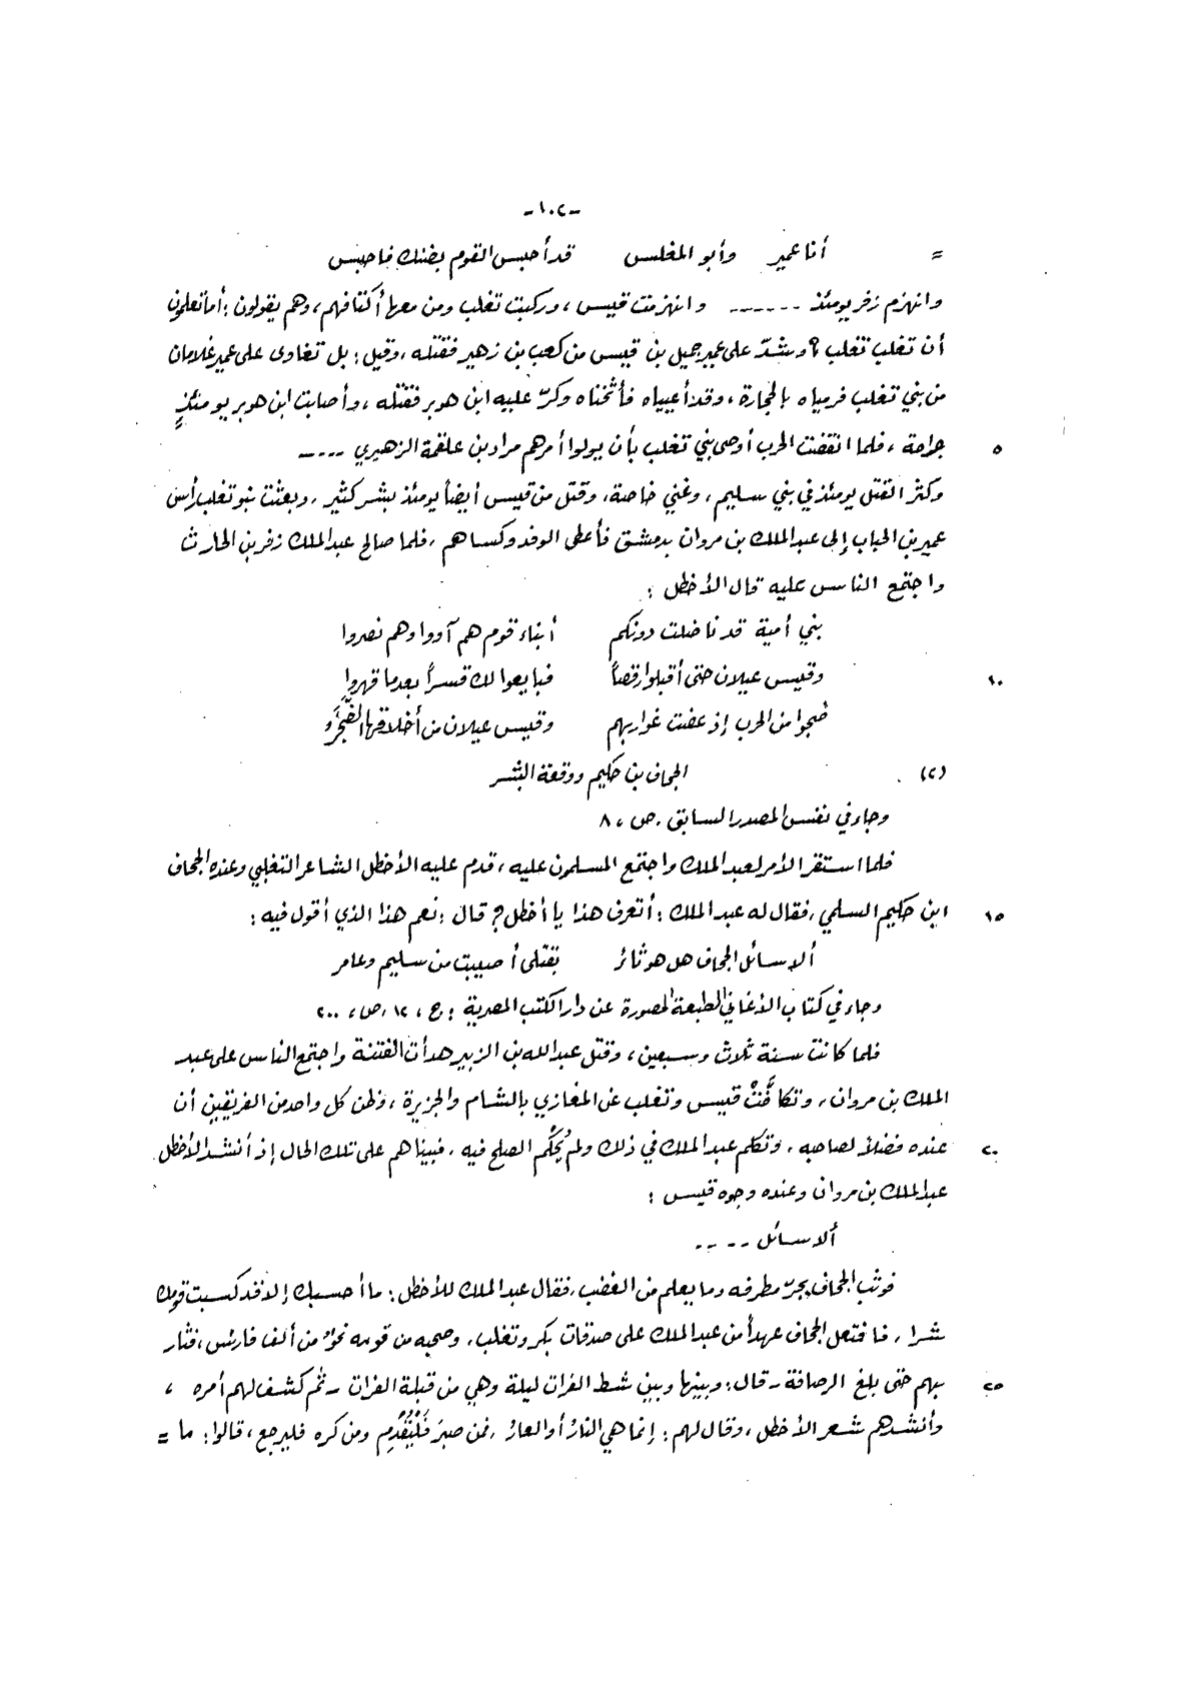 -١٠٢-
= أنا عمير وأبو المغلس قد أحبس القوم بضنك فاحبس
وانهزم زفر يومئذ ------ وانهزمت قيس ، وركبت تغلب ومن معها أكتافهم ، وهم يقولون : أما تعلمون
أن تغلب تغلب ؟ وشدّ على عمير جميل بن قيس من كعب بن زهير فقتله ، وقيل : بل تغاوى على عمير غلامان
من بني تغلب فرمياه بالحجارة ، وقد أعيياه فأثخناه وكرّ عليه ابن هوبر فقتله ، وأصابت ابن هوبر يومئذٍ
٥ جراحة ، فلما انقضت الحرب أوصى بني تغلب بأن يولوا أمرهم مراد بن علقمة الزهيري ----
وكثر القتل يومئذ في بني سليم ، وغني خاصة ، وقتل من قيس أيضاً يومئذ بشر كثير ، وبعثت بنو تغلب رأس
عمير بن الحباب إلى عبد الملك بن مروان بدمشق فأعطى الوفد وكساهم ، فلما صالح عبد الملك زفر بن الحارث
واجتمع الناس عليه قال الأخطل :
بني أمية قد ناضلت دونكم أبناء قوم هم آووا وهم نصروا
١٠ وقيس عيلان حتى أقبلوا رقصاً فبايعوا لك قسراً بعدما قهروا
ضجوا من الحرب إذ عضت غواربهم وقيس عيلان من أخلاقها الضَّجَرُ
(٢) الجحاف بن حكيم ووقعة البشر
وجاء في نفس المصدر السابق ، ص ، ٨
فلما استقر الأمر لعبد الملك واجتمع المسلمون عليه ، قدم عليه الأخطل الشاعر التغلبي وعنده الجحاف
١٥ ابن حكيم السلمي ، فقال له عبد الملك : أتعرف هذا يا أخطل ؟ قال : نعم هذا الذي أقول فيه :
ألا سائل الجحاف هل هو ثائر بقتلى أصيبت من سليم وعامر
وجاء في كتاب الأغاني الطبعة المصورة عن دار الكتب المصرية : ج ، ١٢ ، ص ، ٢٠٠
فلما كانت سنة ثلاث وسبعين ، وقتل عبد الله بن الزبير هدأت الفتنة واجتمع الناس على عبد
الملك بن مروان ، وتكافَّتْ قيس وتغلب عن المغازي بالشام والجزيرة ، وظن كل واحد من الفريقين أن
٢٠ عنده فضلاً لصاحبه ، وتكلم عبد الملك في ذلك ولم يُحْكِم الصلح فيه ، فبينا هم على تلك الحال إذ أنشد الأخطل
عبد الملك بن مروان وعنده وجوه قيس :
ألا سائل ----
فوثب الجحاف يجرّ مطرفه وما يعلم من الغضب ، فقال عبد الملك للأخطل : ما أحسبك إلا قد كسبت قومك
شرا ، فافتعل الجحاف عهداً من عبد الملك على صدقات بكر وتغلب ، وصحبه من قومه نحوٌ من ألف فارس ، فثار
٢٥ بهم حتى بلغ الرصافة - قال : وبينها وبين شط الفرات ليلة وهي من قبلة الفرات - ثم كشف لهم أمره ،
وأنشدهم شعر الأخطل ، وقال لهم : إنما هي النارُ أو العارُ ، فمن صبرَ فَلْيُقْدِم ومن كره فليرجع ، قالوا : ما =